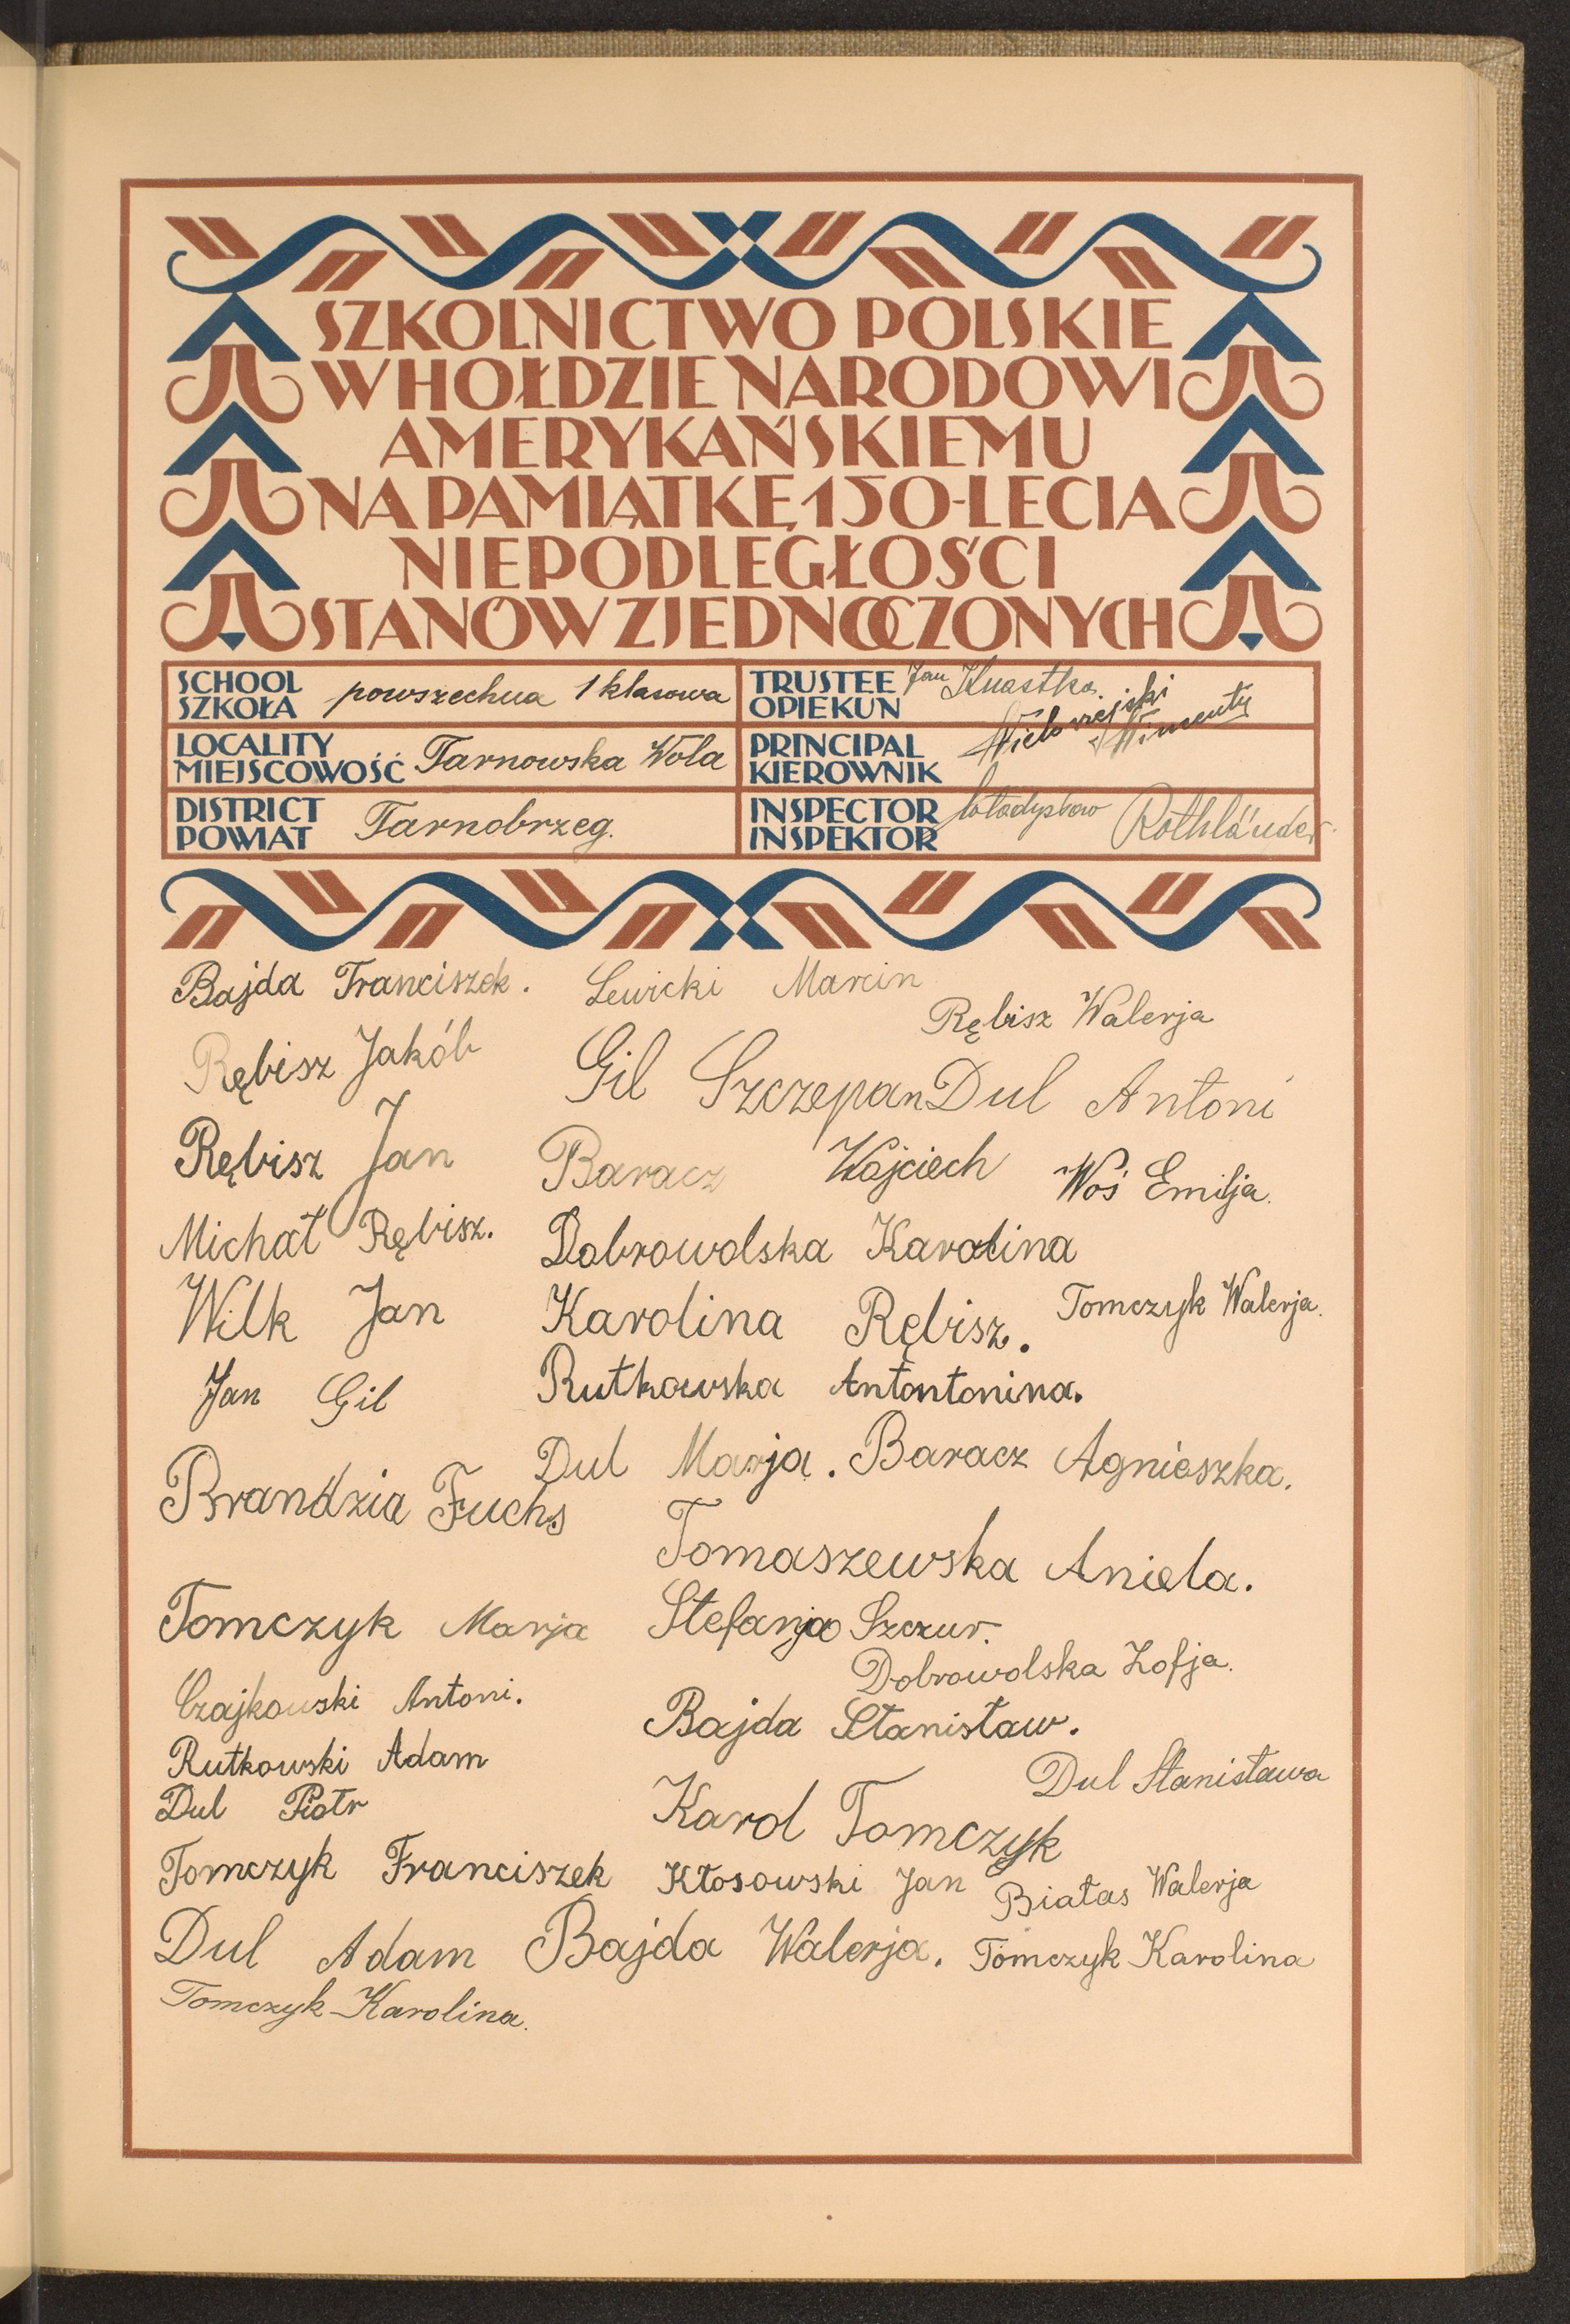 SZKOLNICTWO POLSKIE
W HOŁDZIE NARODOWI
AMERYKAŃSKIEMU
NA PAMIĄTKĘ 150-LECIA
NIEPODLEGŁOŚCI
STANÓW ZJEDNOCZONYCH
SCHOOL
SZKOŁA
powszechna 1 klasowa
TRUSTEE
OPIEKUN
Jan Knastka.
LOCALITY
MIEJSCOWOŚĆ
Tarnowska Wola
PRINCIPAL
KIEROWNIK
DISTRICT
POWIAT
Tarnobrzeg.
INSPECTOR
INSPEKTOR
Władysław Rothländer
Bajda Franciszek.
Lewicki Marcin
Rębisz Walerja
Rębisz Jakób
Gil Szczepan
Dul Antoni
Rębisz Jan
Baracz Wojciech
Woś Emilja.
Michał Rębisz.
Dobrowolska Karolina
Wilk Jan
Karolina Rębisz.
Tomczyk Walerja.
Jan Gil
Rutkowska Antontonina.
Dul Marja.
Baracz Agnieszka.
Brandzia Fuchs
Tomaszewska Aniela.
Tomczyk Marja
Stefanja Szczur.
Dobrowolska Zofja.
Czajkowski Antoni.
Bajda Stanisław.
Rutkowski Adam
Dul Stanisława
Dul Piotr
Karol Tomczyk
Tomczyk Franciszek
Kłosowski Jan
Białas Walerja
Dul Adam
Bajda Walerja.
Tomczyk Karolina
Tomczyk Karolina.